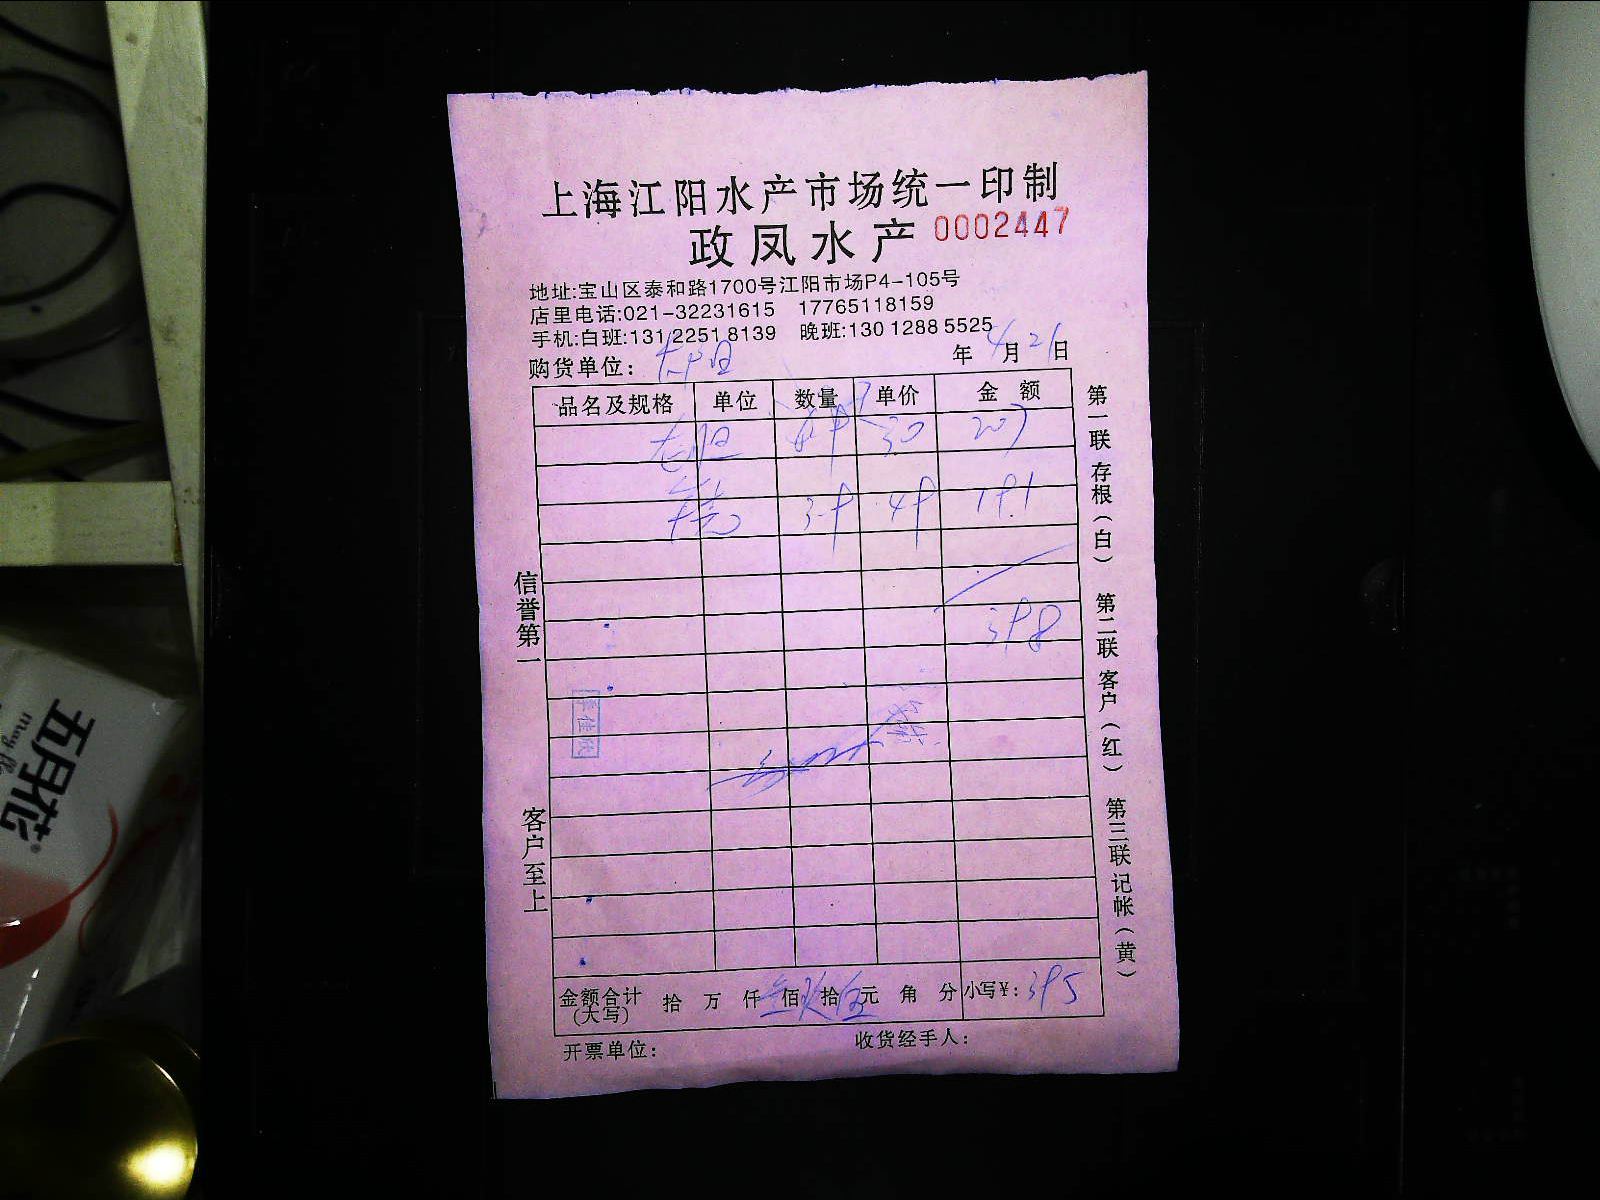 上海江阳水产市场统一印制
政凤水产 0002447
地址:宝山区泰和路1700号江阳市场P4-105号
店里电话:021-32231615 17765118159
手机:白班:131 2251 8139 晚班:130 1288 5525
购货单位:
年4月21日
品名及规格 单位 数量 单价 金额
30 207
398
信誉第一
客户至上
第一联 存根(白) 第二联 客户(红) 第三联 记帐(黄)
金额合计(大写) 拾 万 仟 叁佰 玖拾 伍元 角 分 小写¥: 395
开票单位: 收货经手人:
五月花
May